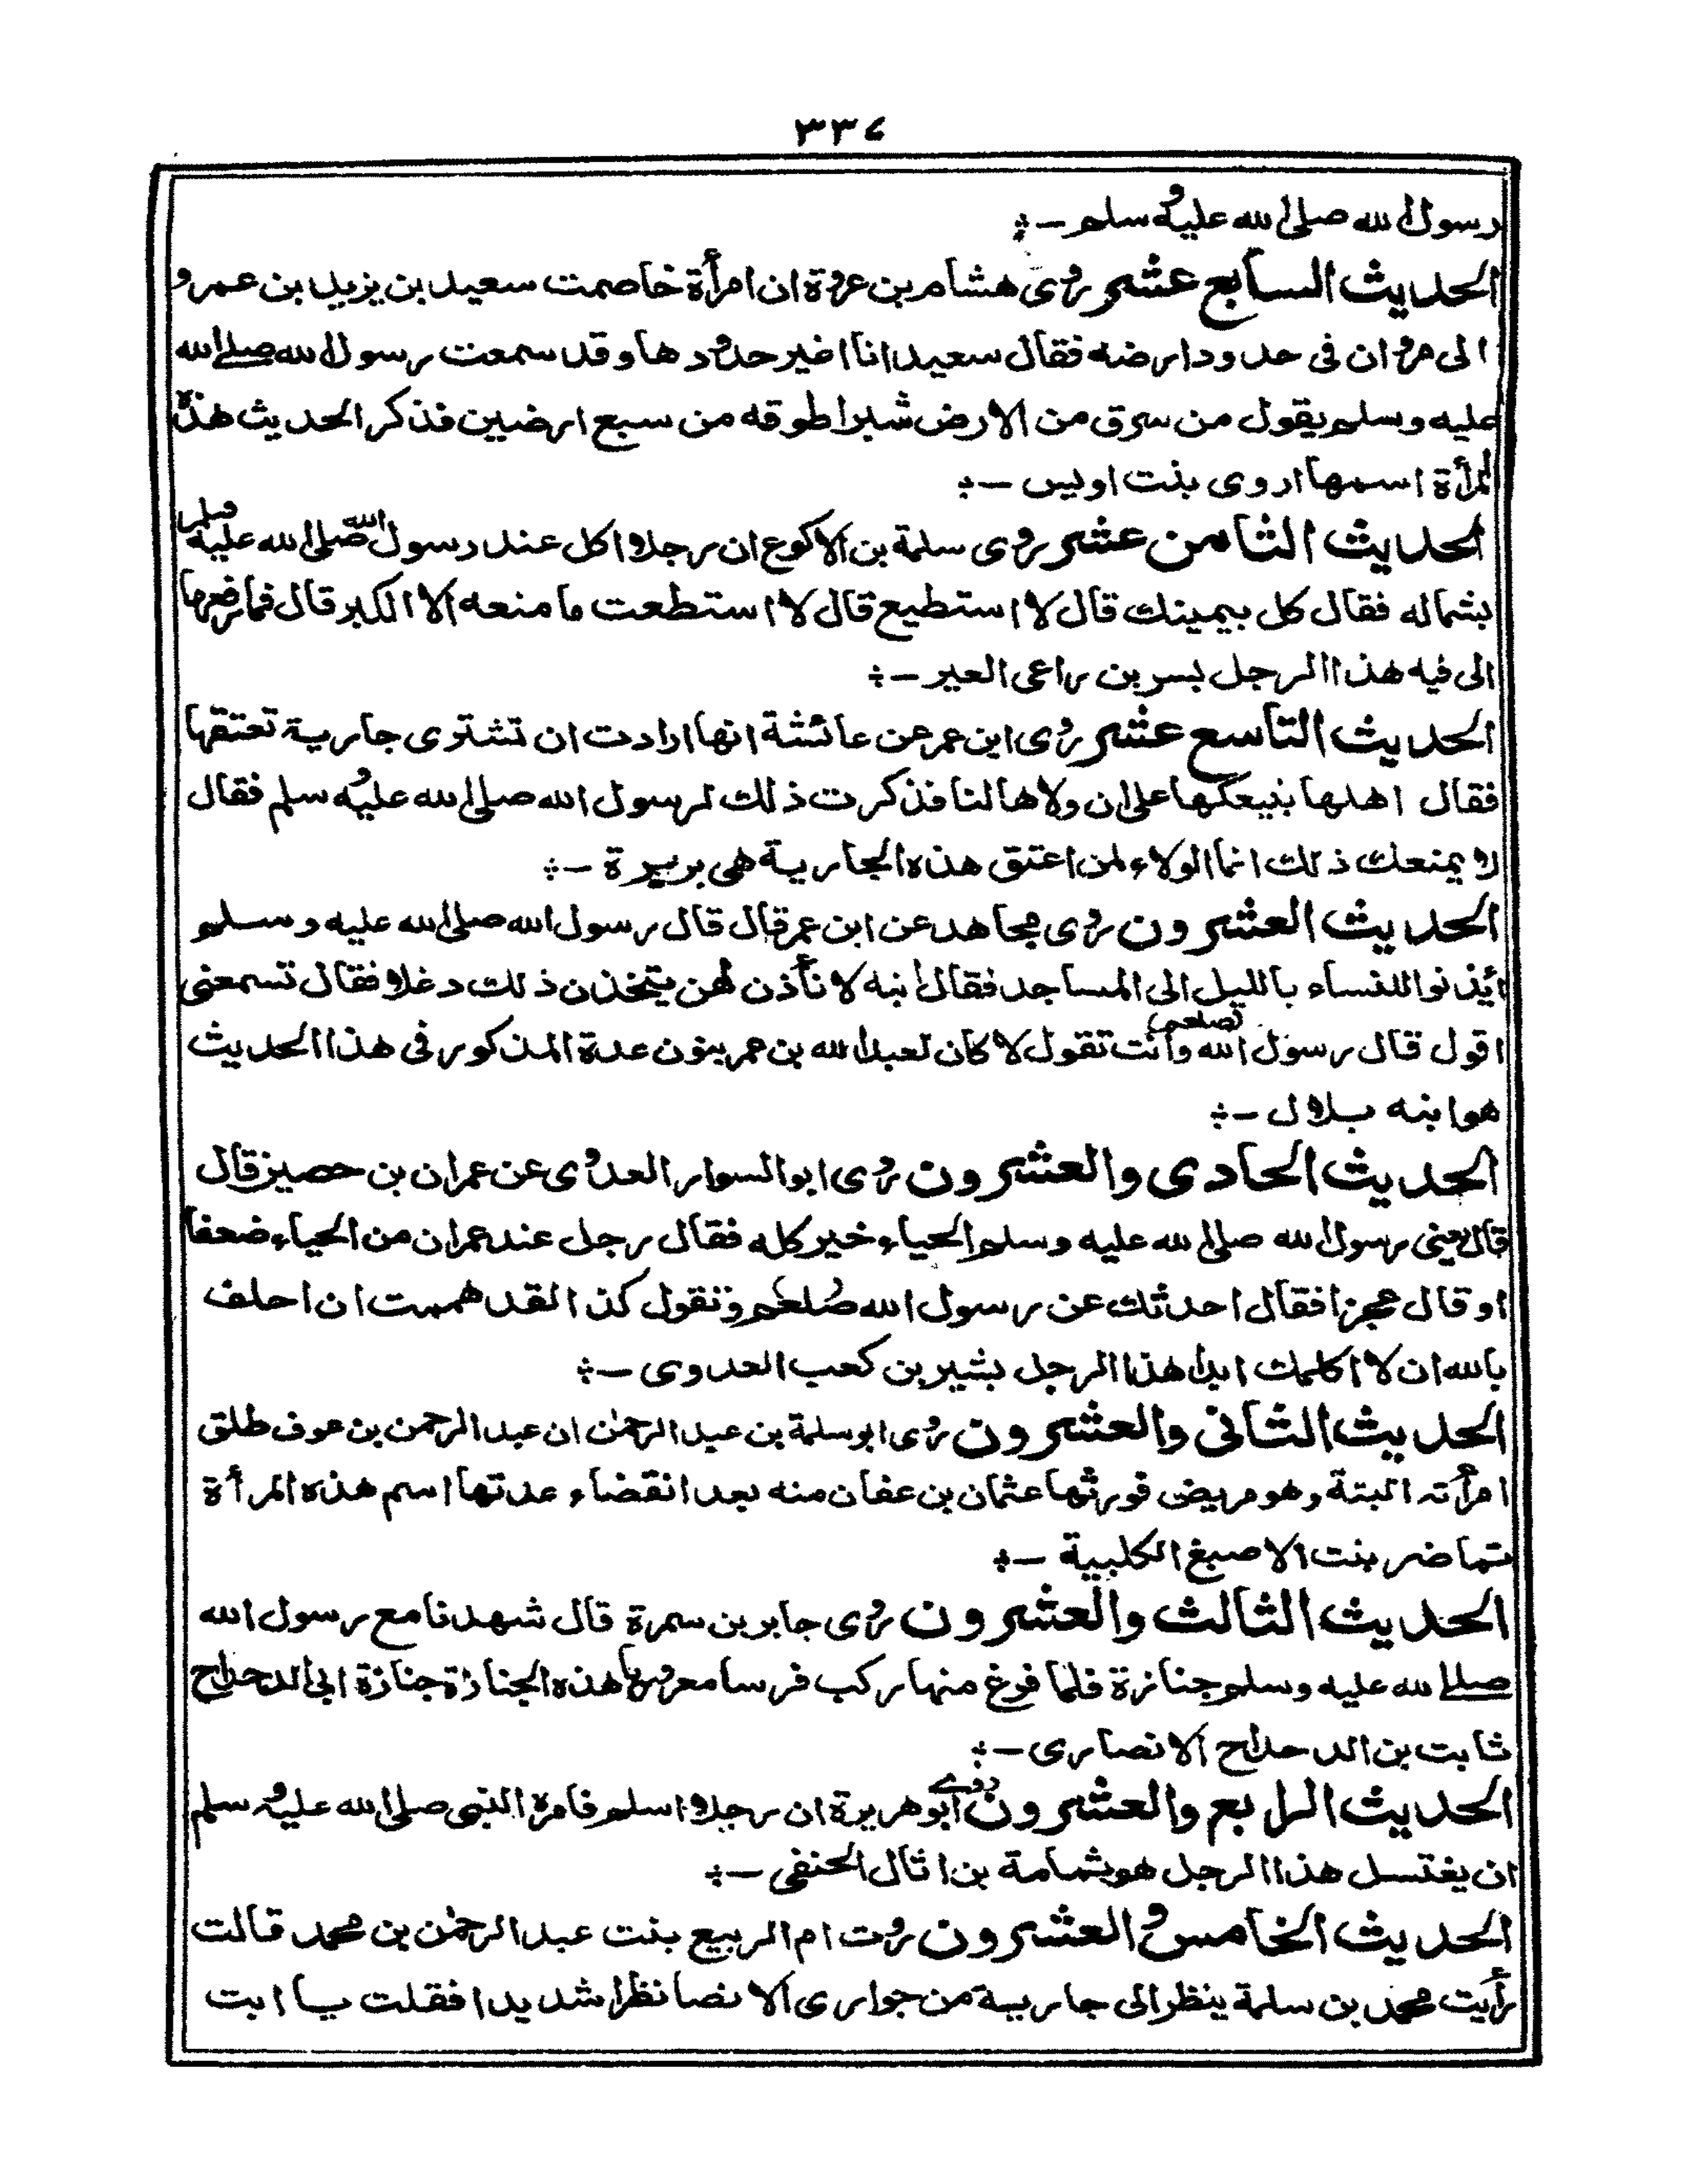 ٣٣٤
رسول الله صلى الله عليه و سلم ـ
الحديث السابع عشر روى هشام بن عروة ان امرأة خاصمت سعيد بن يزيد بن عمرو
الى مروان فى حدود ارضه فقال سعيد انا اغير حدودها وقد سمعت رسول الله صلے الله
عليه وسلم يقول من سرق من الارض شبرا طوقه من سبع ارضين فذكر الحديث هذه
المرأة اسمها اروى بنت اويس ـ
الحديث الثامن عشر روى سلمة بن الاكوع ان رجلا اكل عند رسول الله صلى الله عليه وسلم
بشماله فقال كل بيمينك قال لا استطيع قال لا استطعت ما منعه الا الكبر قال فما رفعها
الى فيه هذا الرجل بسر بن راعى العير ـ
الحديث التاسع عشر روى ابن عمر عن عائشة انها ارادت ان تشترى جارية تعتقها
فقال اهلها بنيعكها على ان ولاها لنا فذكرت ذلك لرسول الله صلى الله عليه و سلم فقال
لا يمنعك ذلك انما الولاء لمن اعتق هذه الجارية هى بريرة ـ
الحديث العشرون روى مجاهد عن ابن عمر قال قال رسول الله صلى الله عليه وسلم
ائذنوا للنساء بالليل الى المساجد فقال ابنه لا نأذن لهن يتخذن ذلك دغلا فقال تسمعنى
اقول قال رسول الله (صلعم) وانت تقول لا كان لعبد الله بن عمر بنون عدة المذكور فى هذا الحديث
هو ابنه بلال ـ
الحديث الحادى والعشرون روى ابو السوار العدوى عن عمران بن حصين قال
قال يعنى رسول الله صلى الله عليه وسلم الحياء خير كله فقال رجل عند عمران من الحياء ضعفا
او قال عجزا فقال احدثك عن رسول الله صلعم وتقول كذا لقد هممت ان احلف
بالله ان لا اكلمك ابدا هذا الرجل بشير بن كعب العدوى ـ
الحديث الثانى والعشرون روى ابو سلمة بن عبد الرحمٰن ان عبد الرحمن بن عوف طلق
امرأته البتة وهو مريض فورثها عثمان بن عفان منه بعد انقضاء عدتها اسم هذه المرأة
تماضر بنت الاصبغ الكلبية ـ
الحديث الثالث والعشرون روى جابر بن سمرة قال شهدنا مع رسول الله
صلے الله عليه وسلم جنازة فلما فرغ منها ركب فرسا معروريا هذه الجنازة جنازة ابى الدحداح
ثابت بن الدحداح الانصارى ـ
الحديث الرابع والعشرون روے أبو هريرة ان رجلا اسلم فامره النبى صلى الله عليه و سلم
ان يغتسل هذا الرجل هو ثمامة بن اثال الحنفى ـ
الحديث الخامس و العشرون روت ام الربيع بنت عبد الرحمٰن بن محمد قالت
رأيت محمد بن سلمة ينظر الى جارية من جوارى الانصا نظرا شديدا فقلت يا ابت